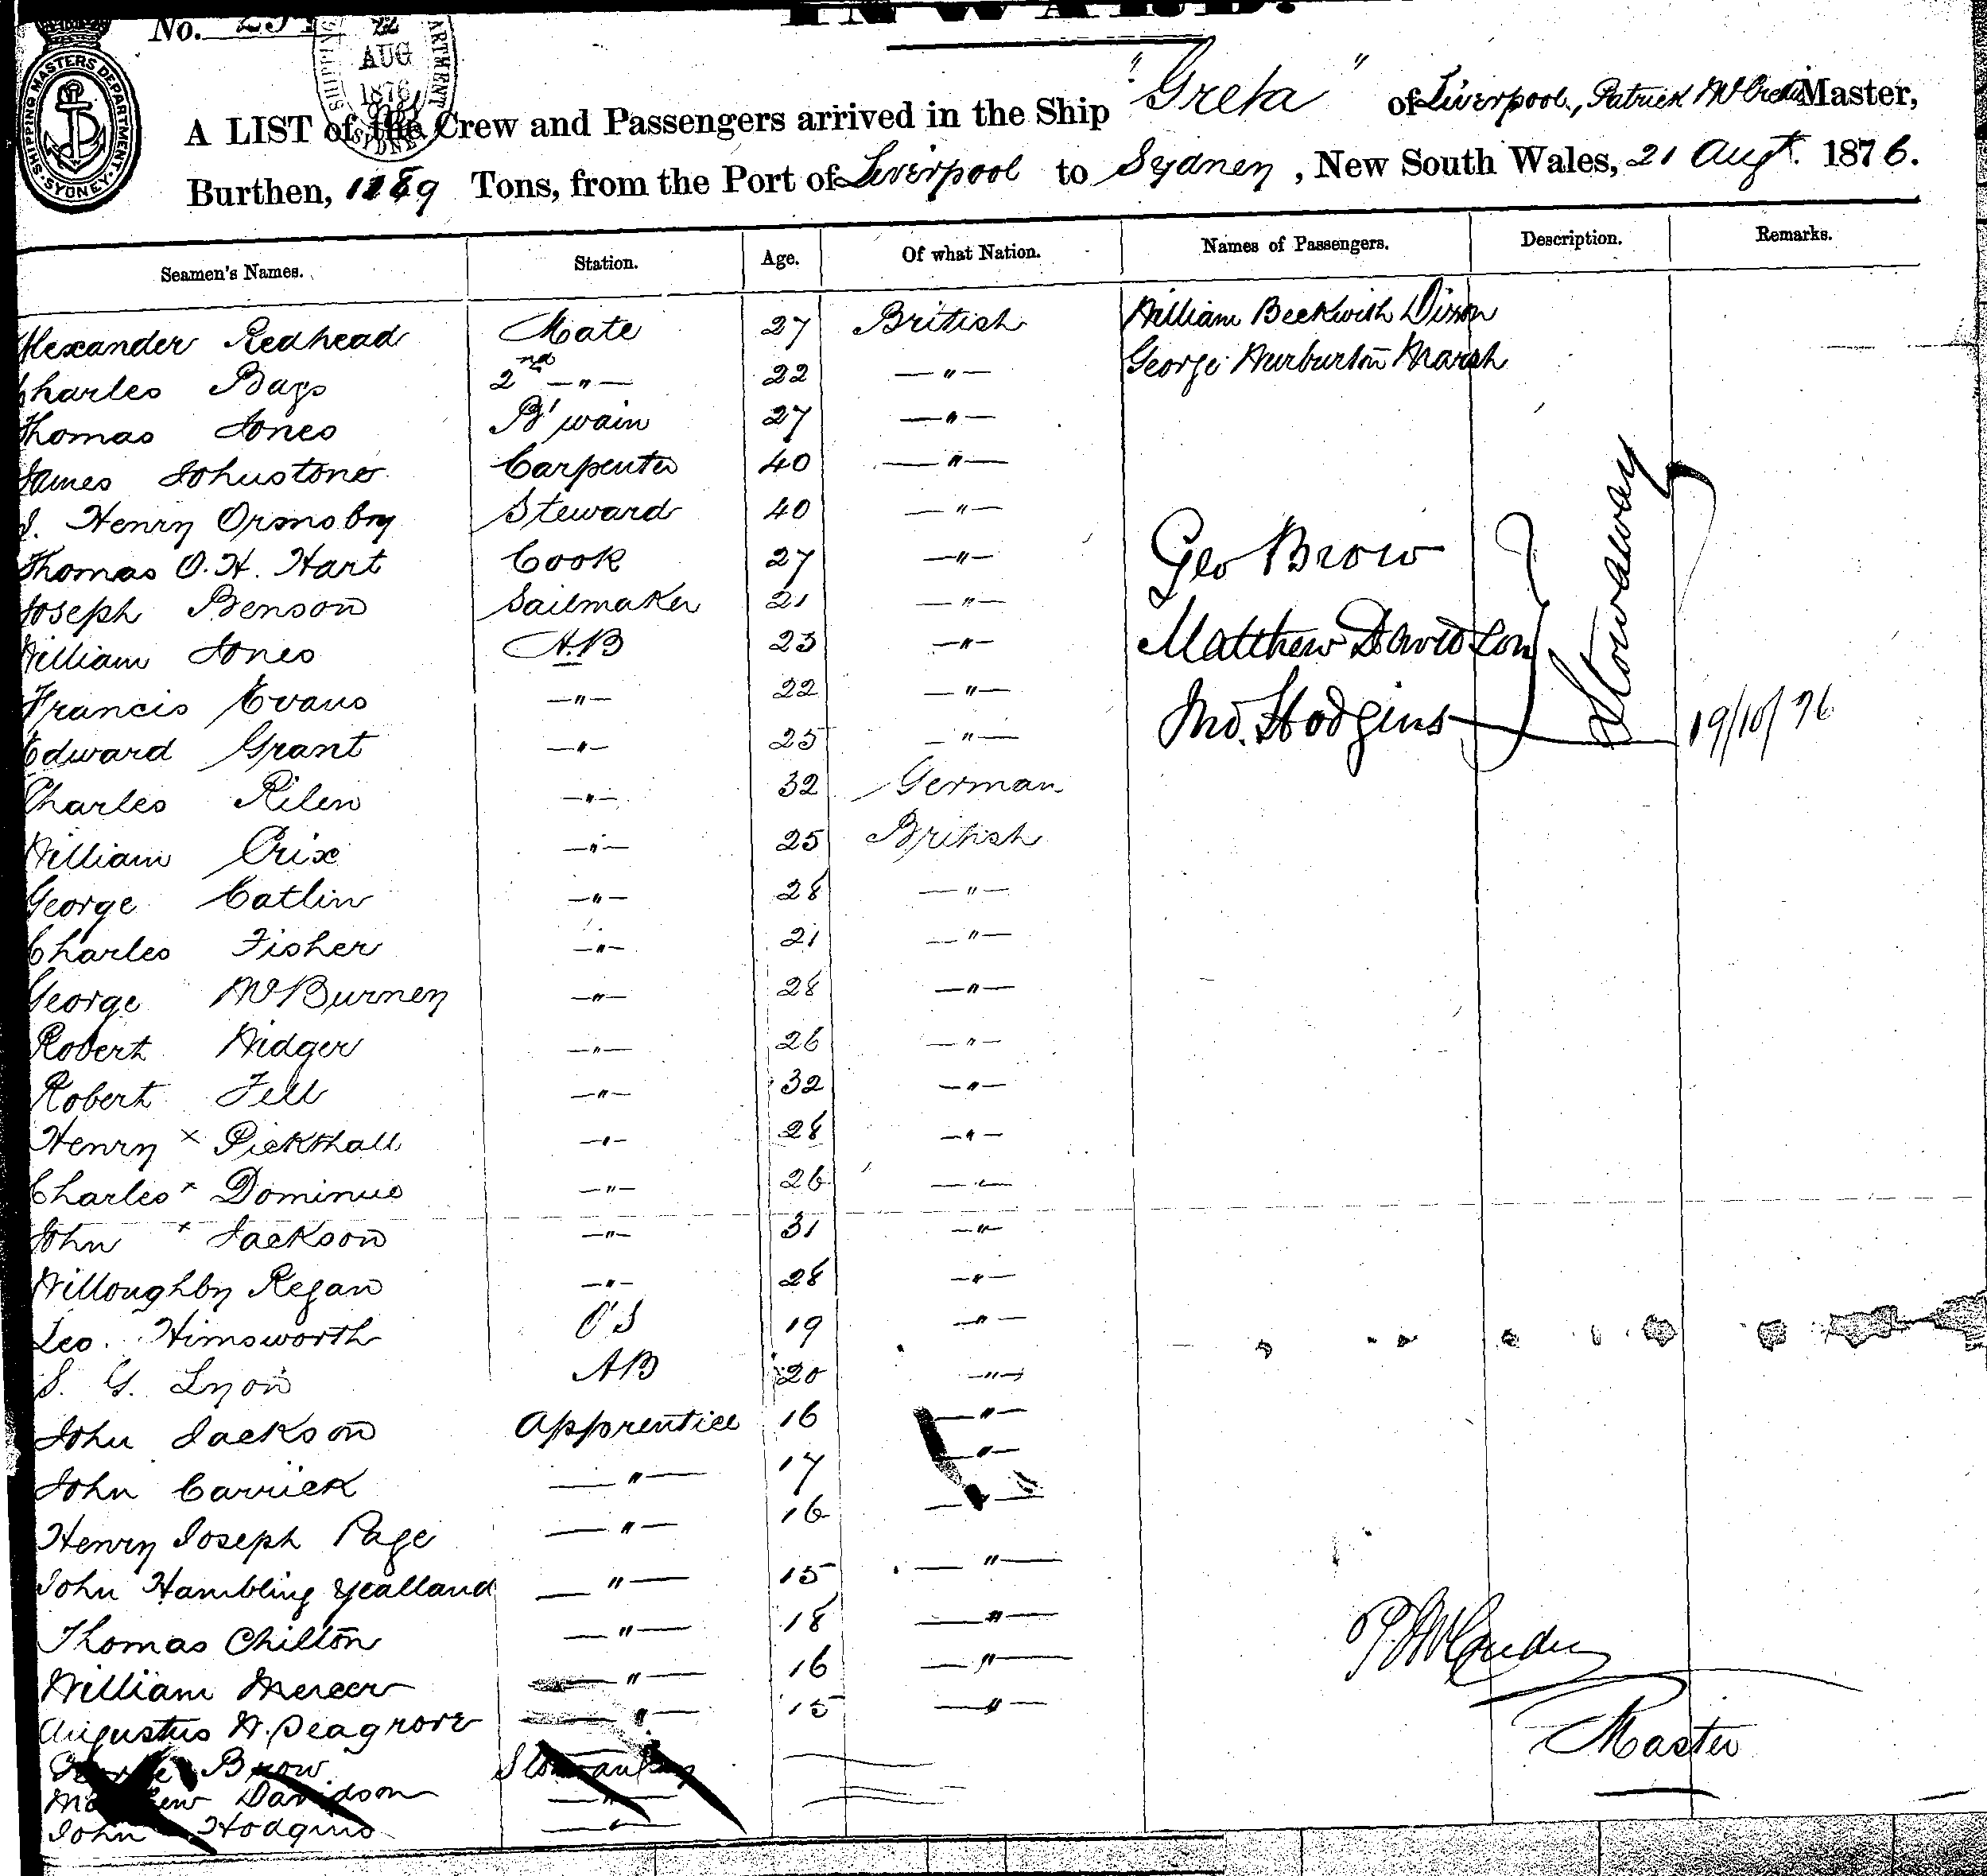 INWARD.
No.
SHIPPING MASTERS DEPARTMENT · SYDNEY ·
22 AUG 1876
A LIST of the Crew and Passengers arrived in the Ship "Greta" of Liverpool, Patrick Master,
Burthen, 1289 Tons, from the Port of Liverpool to Sydney, New South Wales, 21 Augt. 1876.
Seamen's Names. Station. Age. Of what Nation. Names of Passengers. Description. Remarks.
Alexander Redhead Mate 27 British William Beckwith Dixon
Charles Bays 2nd —"— 22 —"— George Warburton Marsh
Thomas Jones B'wain 27 —"—
James Johnstone Carpenter 40 —"—
J. Henry Ormsby Steward 40 —"—
Thomas O. H. Hart Cook 27 —"— Geo Brow
Joseph Benson Sailmaker 21 —"—
William Jones A.B 23 —"— Matthew Davidson Stowaway
Francis Evans —"— 22 —"— Jno. Hodgins 19/10/76
Edward Grant —"— 25 —"—
Charles Rilen —"— 32 German
William Crix —"— 25 British
George Catlin —"— 28 —"—
Charles Fisher —"— 21 —"—
George McBurney —"— 28 —"—
Robert Widger —"— 26 —"—
Robert Fell —"— 32 —"—
Henry x Pickthall —"— 28 —"—
Charles x Dominus —"— 26 —"—
John x Jackson —"— 31 —"—
Willoughby Regan —"— 28 —"—
Leo. Himsworth O'S 19 —"—
S. G. Lyon AB 20 —"—
John Jackson Apprentice 16 —"—
John Carrick —"— 17 —"—
Henry Joseph Page —"— 16 —"—
John Hambling Yealland —"— 15 —"—
Thomas Chilton —"— 18 —"—
William Mercer —"— 16 —"—
Augustus W. Seagrove —"— 15 —"—
George Brow Stowaway
Matthew Davidson —"—
John Hodgins —"—
Master